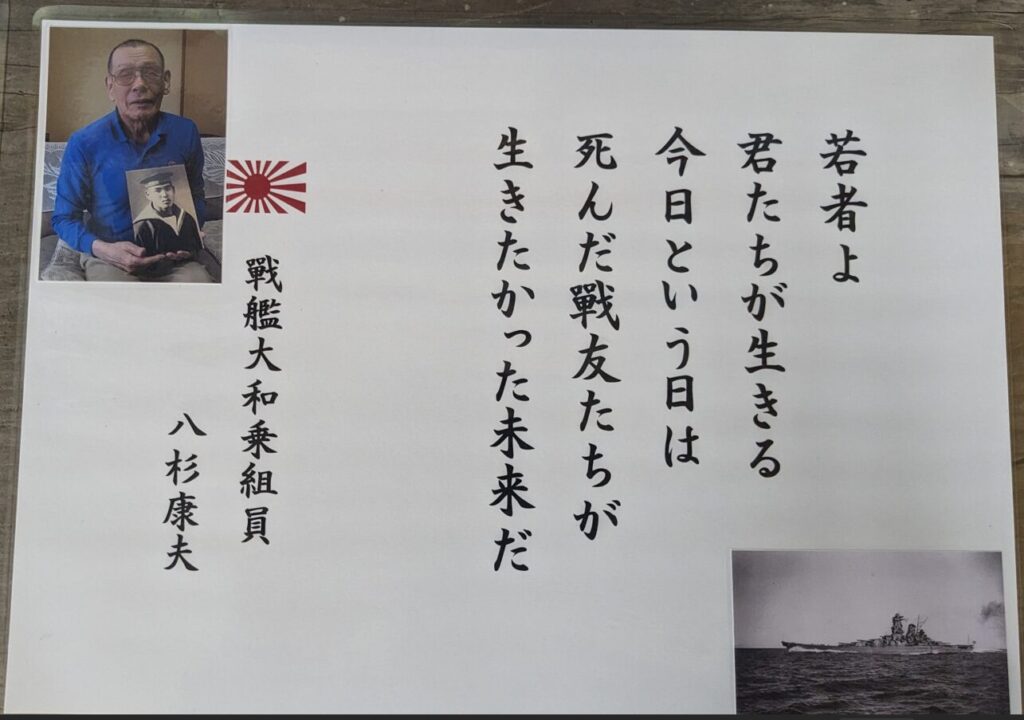 若者よ
君たちが生きる
今日という日は
死んだ戰友たちが
生きたかった未来だ
戰艦大和乗組員
八杉康夫